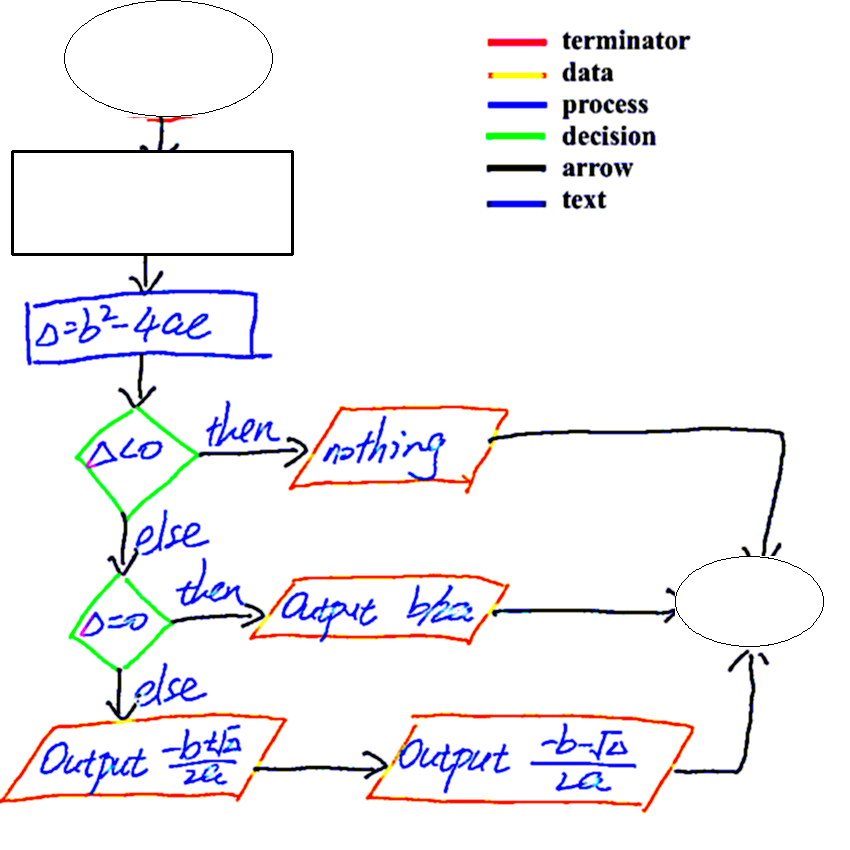 terminator
data
process
decision
arrow
text
Δ=b²-4ac
Δ<0
then
nothing
else
Δ=0
then
Output b/2a
else
Output (-b+√Δ)/2a
Output (-b-√Δ)/2a